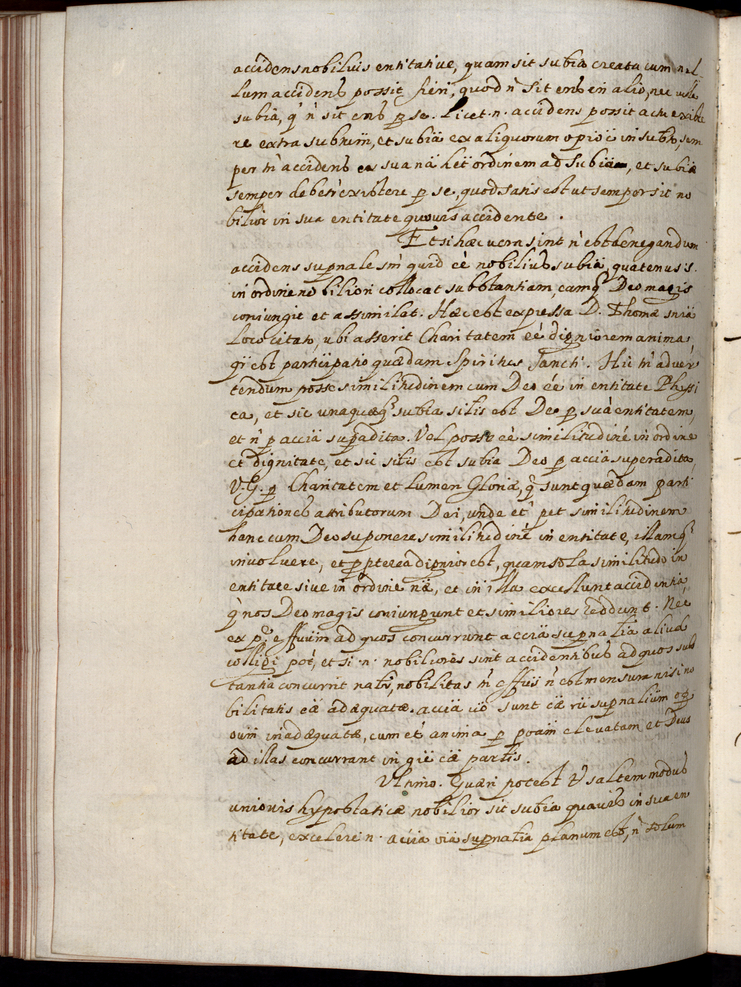 accidens nobilius entitatiue, quam sit subīa creata cum nul-
lum accidens possit fieri, quod ñ sit ens in alio, nec ulla
subīa, q̃ ñ sit ens ꝑ se. Licet .n. accidens possit actu existe
re extra subīum, et subīa ex aliquorum opiõe in subīo, sem
per tñ accidens ex sua nā̃ het̃ ordinem ad subīam, et subīa
semper debet existere ꝑ se, quod satis est ut semper sit no
bilior in sua entitate quouis accidente.
Etsi hæc uera sint ñ est denegandum
accidens supñale sm̃ quid eẽ nobilius subīa, quatenus .s.
in ordine nobiliori collocat substantiam, eamq̃ Deo magis
coniungit et assimilat. Hæc est expressa D. Thomæ sñia
loco citato, ubi asserit Charitatem eẽ digniorem anima,
q̃ est participatio quædam Spiritus Sancti. Hic tñ aduer
tendum posse similitudinem cum Deo eẽ in entitate Physi
ca, et sic unaquæq̃ subīa silis est Deo ꝑ suã entitatem,
et ñ ꝑ acciã supradita. Vel posse eẽ similitudinẽ in ordine
et dignitate, et sic silis est subīa Deo ꝑ acciã superadita,
V.G. ꝑ Charitatem et lumen Gloriæ, q̃ sunt quædam parti
cipationes attributorum Dei, unde et pẽt similitudinem
hanc cum Deo supponere similitudinẽ in entitate, illamq̃
inuoluere, et ꝓpterea dignior est, quam sola similitudo in
entitate siue in ordine nã, et in illa excellunt accidentia
q̃ nos Deo magis coniungunt et similiores reddunt. Nec
ex ꝑ effuũm ad quos concurrunt acciã supnatĩa aliud
colligi põt, et si .n. nobiliores sint accidentibus ad quos subs
tantia concurrit natĩr, nobilitas tñ effũs ñ est mensura nisi no
bilitatis cæ adæquatæ. acciã uõ sunt cæ rũ supnalium
oũm inadæquatæ, cum et anima ꝑ põam eleuatam et Deus
ad illas concurrant in gñe cæ partĩs.
Vltimo. Quæri potest ũ saltem modus
unionis hypostaticæ nobilior sit subīa quauis in sua en
titate, excelere .n. acciã oĩa supnatĩa planum est, ñ solum